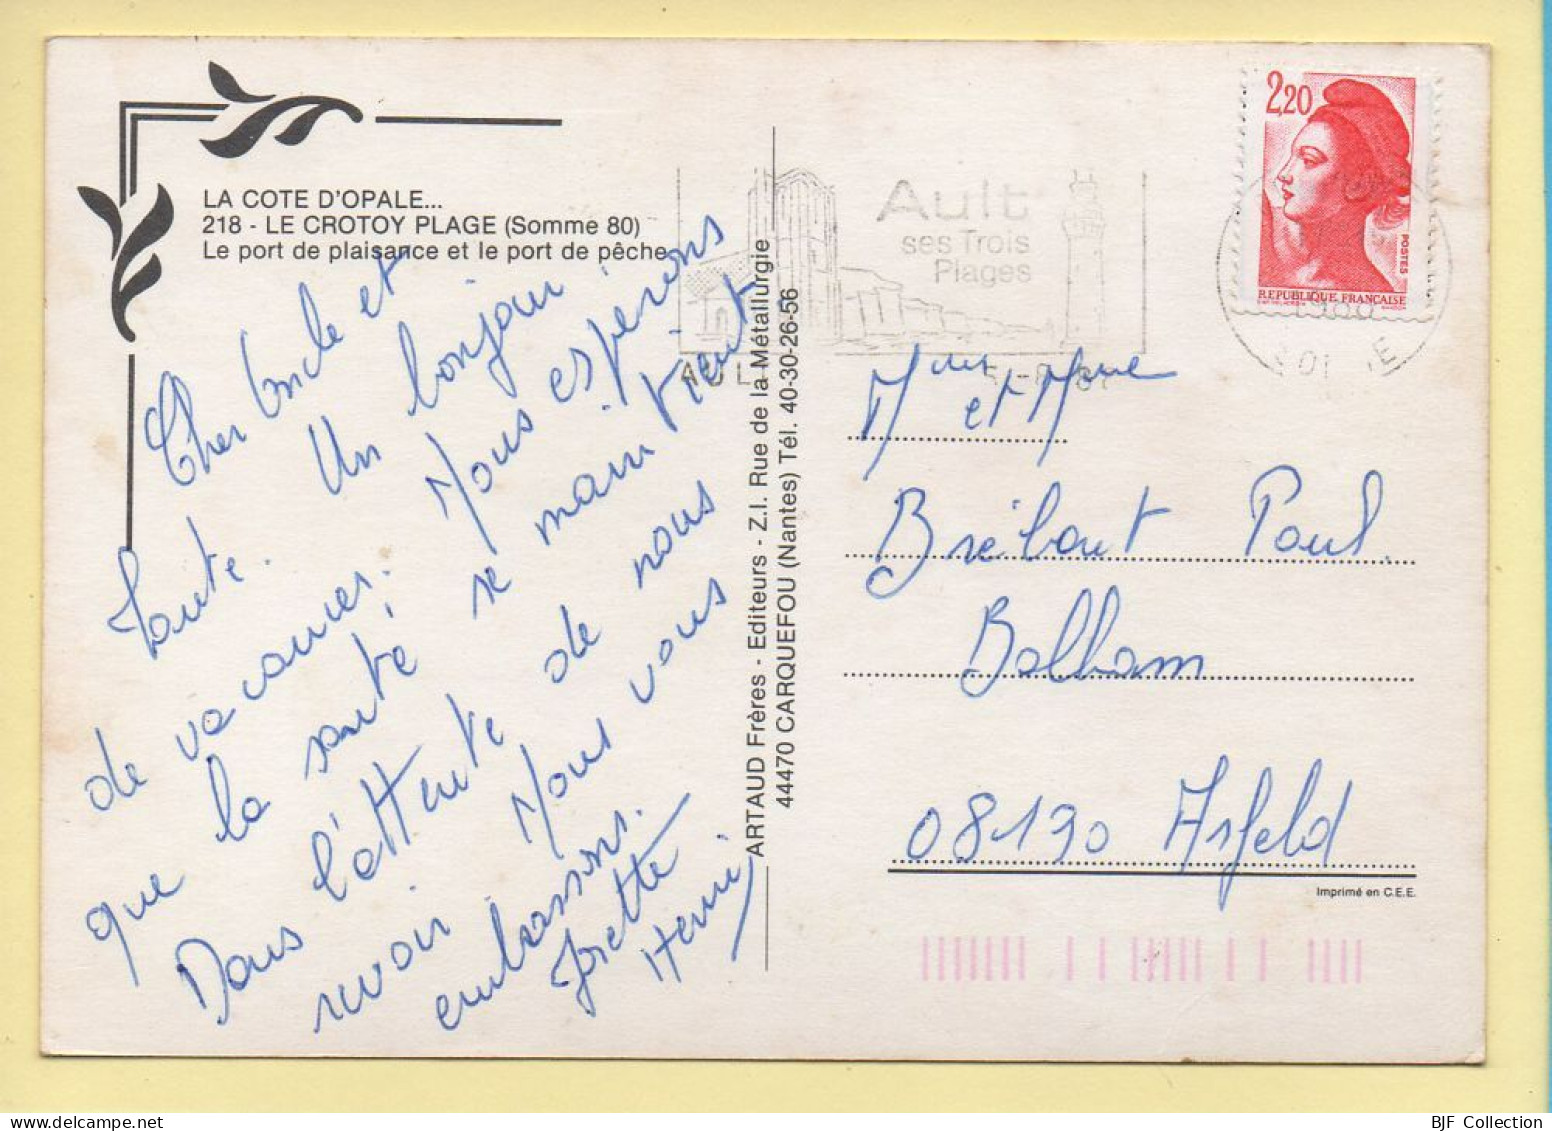 LA COTE D'OPALE...
218 - LE CROTOY PLAGE (Somme 80)
Le port de plaisance et le port de pêche
Cher Oncle et
Tante. Un bonjour
de vacances. Nous espérons
que la santé se maintient
Dans l'attente de nous
revoir Nous vous
embrassons.
Josette
Henri
ARTAUD Frères - Editeurs - Z.I. Rue de la Métallurgie
44470 CARQUEFOU (Nantes) Tél. 40-30-26-56
Ault
ses Trois
Plages
AULT
2,20
POSTES
REPUBLIQUE FRANÇAISE
Mr et Mme
Brébant Paul.
Balham
08190 Asfeld
Imprimé en C.E.E.
BJF Collection